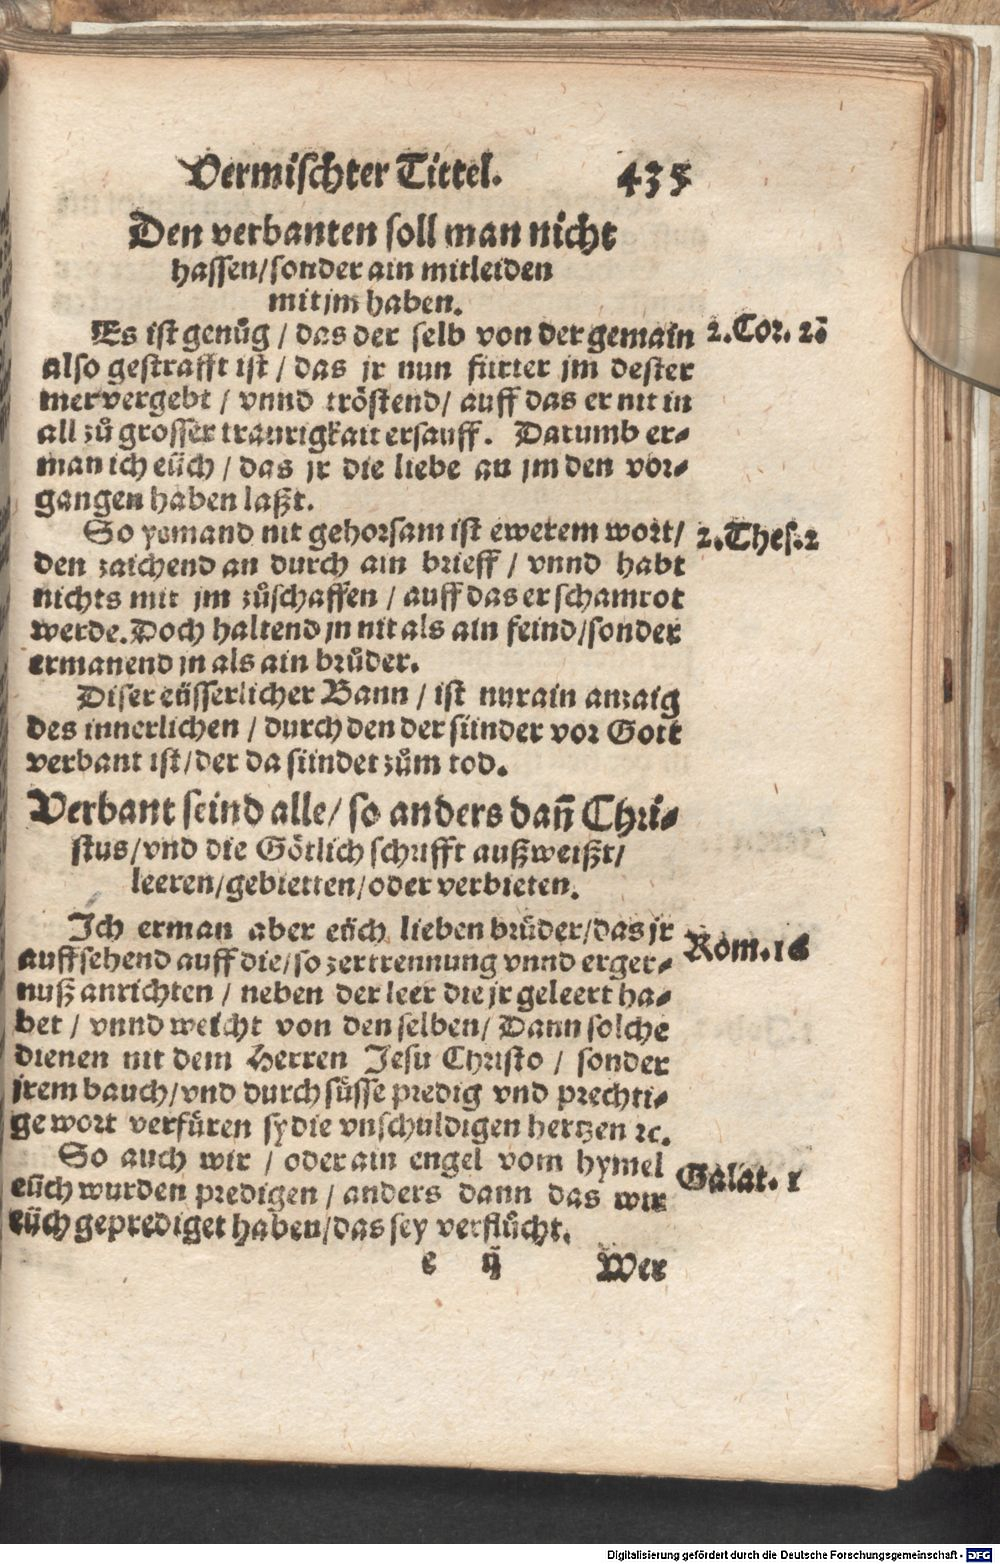 Vermischter Tittel. 435
Den verbanten soll man nicht
hassen/sonder ain mitleiden
mit jm haben.
Es ist genůg / das der selb von der gemain 2.Cor. 2
also gestrafft ist / das jr nun fürter jm dester
mer vergebt / vnnd tröstend/ auff das er nit in
all zů grosser traurigkait ersauff. Darumb er-
man ich eüch / das jr die liebe an jm den vor-
gangen haben laßt.
So yemand nit gehorsam ist ewerem wort/ 2.Thes.2
den zaichend an durch ain brieff / vnnd habt
nichts mit jm zůschaffen / auff das er schamrot
werde. Doch haltend jn nit als ain feind/sonder
ermanend jn als ain brůder.
Diser eüsserlicher Bann / ist nur ain anzaig
des innerlichen / durch den der sünder vor Gott
verbant ist/der da sündet zům tod.
Verbant seind alle/ so anders dañ Chri-
stus/vnd die Götlich schrifft außweißt/
leeren/gebietten/oder verbieten.
Ich erman aber eüch lieben brüder/das jr Rom.16
auffsehend auff die/so zertrennung vnnd erger-
nuß anrichten / neben der leer die jr geleert ha-
bet / vnnd weicht von den selben/ Dann solche
dienen nit dem Herren Jesu Christo / sonder
jrem bauch/vnd durch süsse predig vnd prechti-
ge wort verfüren sy die vnschuldigen hertzen ꝛc.
So auch wir / oder ain engel vom hymel Galat. 1
eüch wurden predigen / anders dann das wir
eüch geprediget haben/das sey verflůcht.
e ij Wer
Digitalisierung gefördert durch die Deutsche Forschungsgemeinschaft - DFG